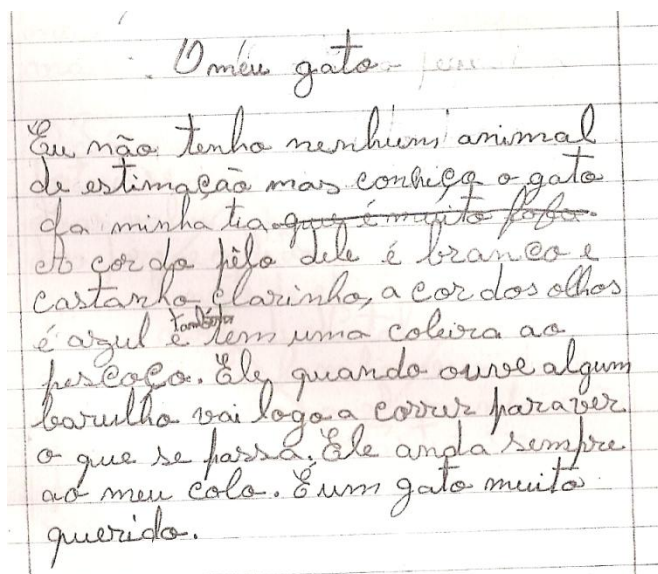 O meu gato
Eu não tenho nenhum animal
de estimação mas conheço o gato
da minha tia que é muito fofo.
A cor do pêlo dele é branco e
castanho clarinho, a cor dos olhos
é azul e também tem uma coleira ao
pescoço. Ele quando ouve algum
barulho vai logo a correr para ver
o que se passa. Ele anda sempre
ao meu colo. É um gato muito
querido.